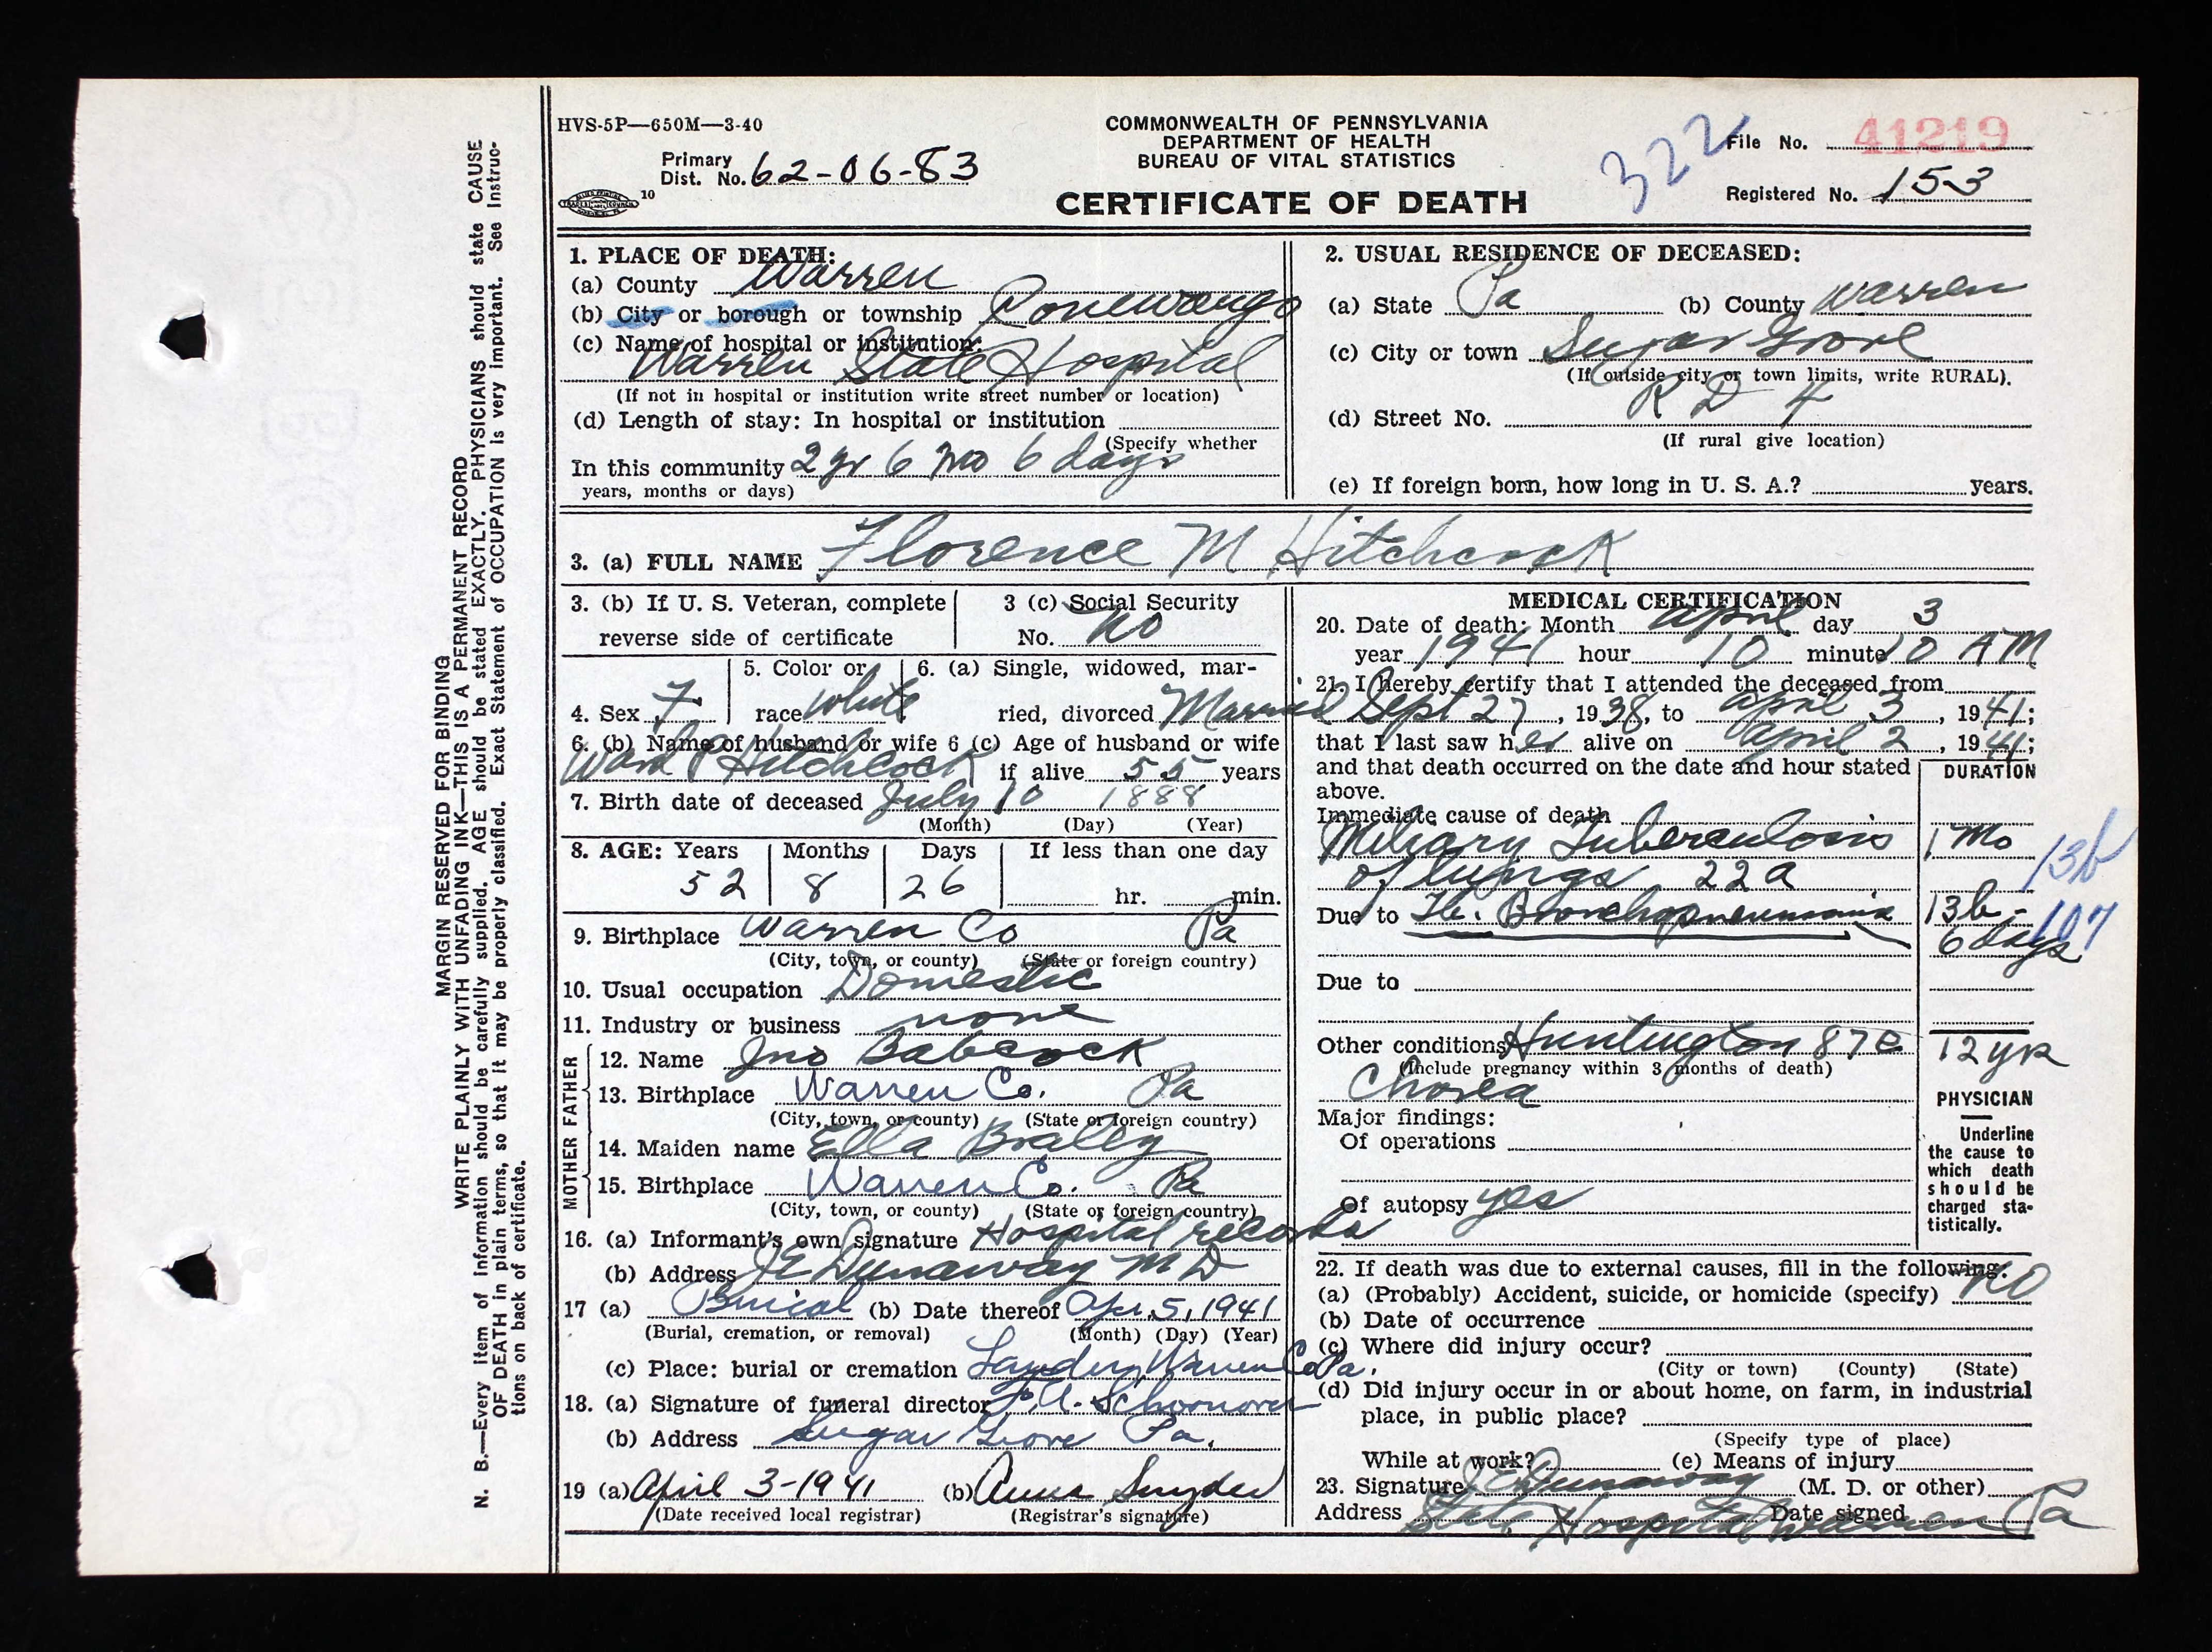 HVS-5P—650M—3-40
COMMONWEALTH OF PENNSYLVANIA
DEPARTMENT OF HEALTH
BUREAU OF VITAL STATISTICS
CERTIFICATE OF DEATH
Primary
Dist. No. 62-06-83
10
322
File No. 41219
Registered No. 153
MARGIN RESERVED FOR BINDING
WRITE PLAINLY WITH UNFADING INK—THIS IS A PERMANENT RECORD
N. B.—Every item of information should be carefully supplied. AGE should be stated EXACTLY. PHYSICIANS should state CAUSE
OF DEATH in plain terms, so that it may be properly classified. Exact Statement of OCCUPATION is very important. See Instruc-
tions on back of certificate.
1. PLACE OF DEATH:
(a) County Warren
(b) City or borough or township Conewango
(c) Name of hospital or institution:
Warren State Hospital
(If not in hospital or institution write street number or location)
(d) Length of stay: In hospital or institution
(Specify whether
In this community 2 yr 6 mo 6 days
years, months or days)
2. USUAL RESIDENCE OF DECEASED:
(a) State Pa (b) County Warren
(c) City or town Sugar Grove
(If outside city or town limits, write RURAL).
(d) Street No. R D 4
(If rural give location)
(e) If foreign born, how long in U. S. A.? years.
3. (a) FULL NAME Florence M Hitchcock
3. (b) If U. S. Veteran, complete
reverse side of certificate
3 (c) Social Security
No. No
4. Sex F
5. Color or
race white
6. (a) Single, widowed, mar-
ried, divorced Married
6. (b) Name of husband or wife
Ward P Hitchcock
6 (c) Age of husband or wife
if alive 55 years
7. Birth date of deceased July 10 1888
(Month) (Day) (Year)
8. AGE: Years Months Days If less than one day
52 8 26 hr. min.
9. Birthplace Warren Co Pa
(City, town, or county) (State or foreign country)
10. Usual occupation Domestic
11. Industry or business none
FATHER
12. Name Jno Babcock
13. Birthplace Warren Co. Pa
(City, town, or county) (State or foreign country)
MOTHER
14. Maiden name Ella Braley
15. Birthplace Warren Co. Pa
(City, town, or county) (State or foreign country)
16. (a) Informant's own signature Hospital records
(b) Address J E Dunaway M D
17 (a) Burial (b) Date thereof Apr. 5, 1941
(Burial, cremation, or removal) (Month) (Day) (Year)
(c) Place: burial or cremation Lander, Warren Co Pa.
18. (a) Signature of funeral director Schoonover
(b) Address Sugar Grove Pa.
19 (a) April 3-1941 (b) Anna Snyder
(Date received local registrar) (Registrar's signature)
MEDICAL CERTIFICATION
20. Date of death: Month April day 3
year 1941 hour 10 minute 10 AM
21. I hereby certify that I attended the deceased from
Sept 27, 1938, to April 3, 1941;
that I last saw her alive on April 2, 1941;
and that death occurred on the date and hour stated
above.
DURATION
Immediate cause of death
Miliary Tuberculosis 1 Mo
of lungs 22a
13b
Due to Tb. Bronchopneumonia 13b-
6 days 107
Due to
Other conditions Huntington 87e 12 yrs
(Include pregnancy within 3 months of death)
Chorea
Major findings:
Of operations
Of autopsy yes
PHYSICIAN
Underline
the cause to
which death
should be
charged sta-
tistically.
22. If death was due to external causes, fill in the following:
(a) (Probably) Accident, suicide, or homicide (specify) NO
(b) Date of occurrence
(c) Where did injury occur?
(City or town) (County) (State)
(d) Did injury occur in or about home, on farm, in industrial
place, in public place?
(Specify type of place)
While at work? (e) Means of injury
23. Signature J E Dunaway (M. D. or other)
Address State Hospital Warren Pa Date signed